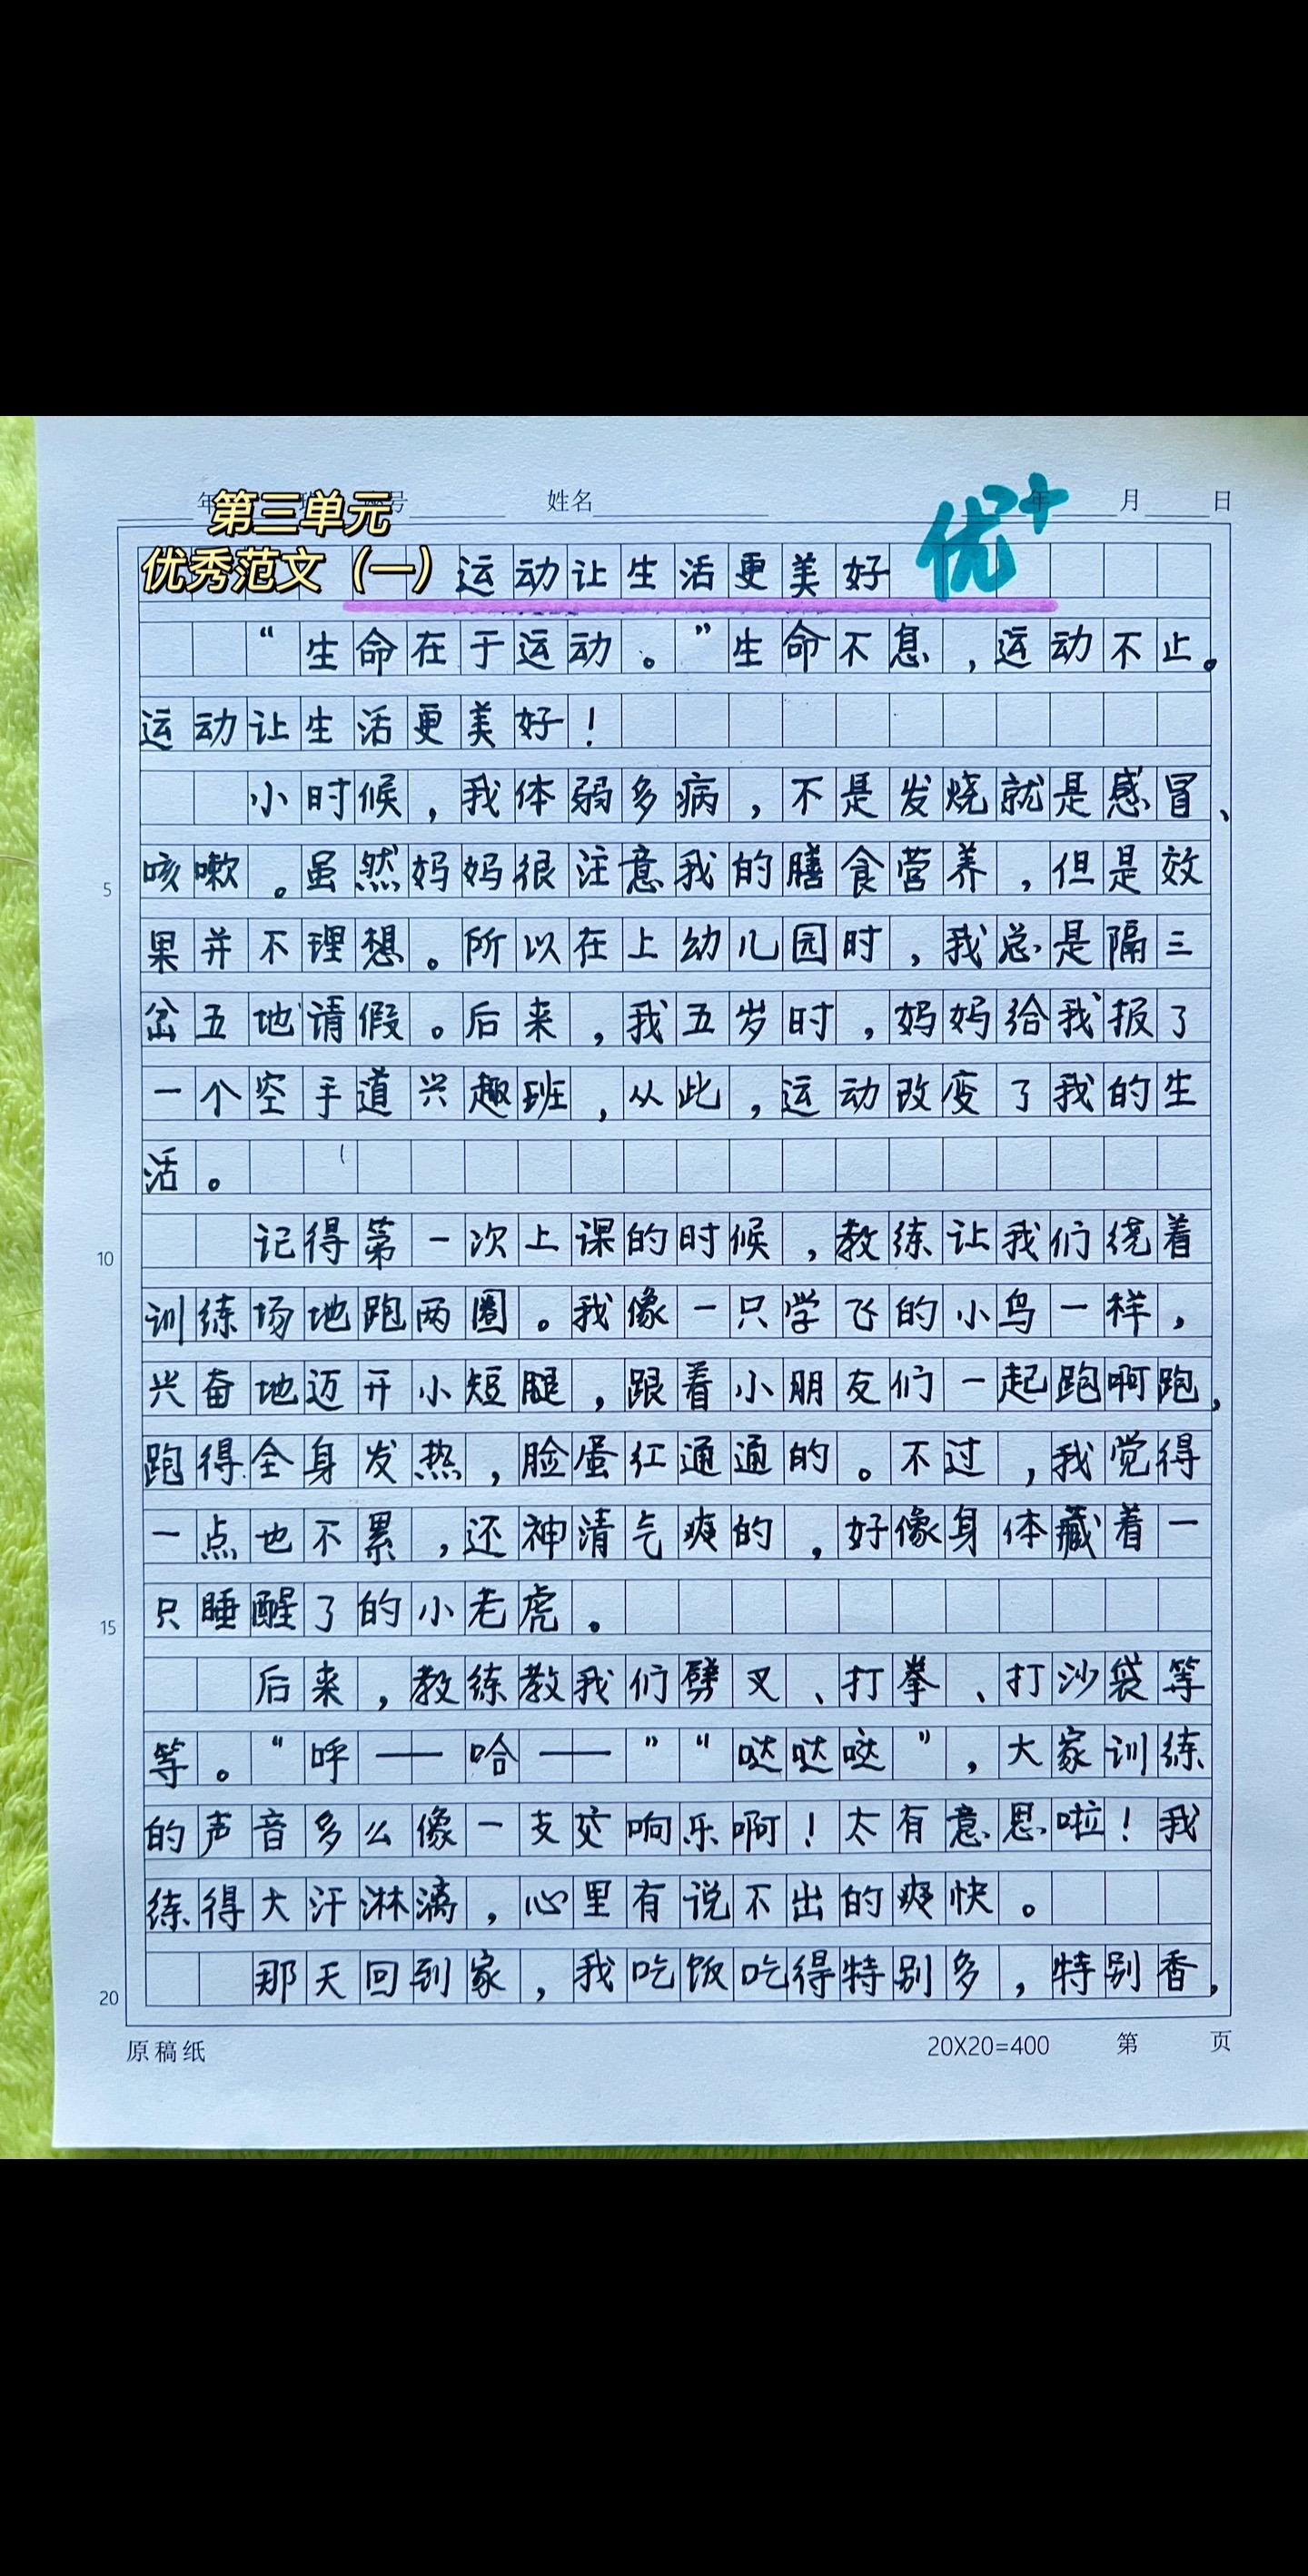 年 班 号 姓名 年 月 日
第三单元
优秀范文（一）
优+
运动让生活更美好
“生命在于运动。”生命不息，运动不止。
运动让生活更美好！
小时候，我体弱多病，不是发烧就是感冒、
5 咳嗽。虽然妈妈很注意我的膳食营养，但是效
果并不理想。所以在上幼儿园时，我总是隔三
岔五地请假。后来，我五岁时，妈妈给我报了
一个空手道兴趣班，从此，运动改变了我的生
活。
10 记得第一次上课的时候，教练让我们绕着
训练场地跑两圈。我像一只学飞的小鸟一样，
兴奋地迈开小短腿，跟着小朋友们一起跑啊跑，
跑得全身发热，脸蛋红通通的。不过，我觉得
一点也不累，还神清气爽的，好像身体藏着一
15 只睡醒了的小老虎。
后来，教练教我们劈叉、打拳、打沙袋等
等。“呼——哈——”“哒哒哒”，大家训练
的声音多么像一支交响乐啊！太有意思啦！我
练得大汗淋漓，心里有说不出的爽快。
20 那天回到家，我吃饭吃得特别多，特别香，
原稿纸 20X20=400 第 页